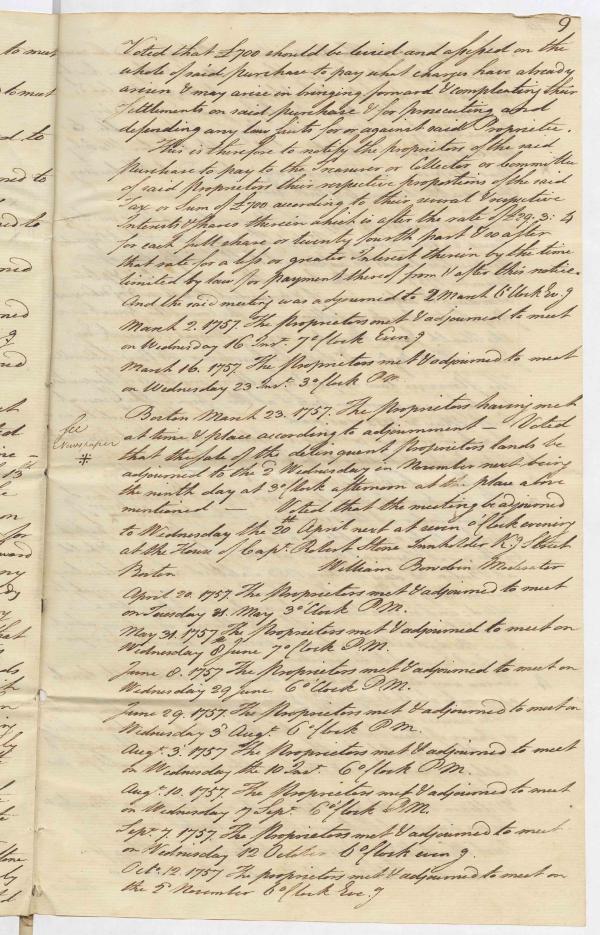 9
Voted that £700 should be levied and assessed on the
whole of said purchase to pay what charges have already
arisen & may arise in bringing forward & compleating their
settlements on said purchase & for prosecuting and
defending any law suits for or against said Proprietie.
This is therefore to notify the proprietors of the said
purchase to pay to the Treasurer or Collector or Committee
of said Proprietors their respective proportions of the said
Tax or Sum of £700 according to their several & respective
Interests & shares therein which is after the rate of £29:3:4
for each full share or twenty fourth part & so after
that rate for a less or greater Interest therein by the time
limited by law for payment thereof from & after this notice.
And the said meeting was adjourned to 2 March 6 Clock Ev.g
March 2. 1757. The Proprietors met & adjourned to meet
on Wednesday 16 Inst. 7 o'Clock Even.g
March 16. 1757. The Proprietors met & adjourned to meet
on Wednesday 23 Inst. 3 o'Clock PM
Boston March 23. 1757. The Proprietors having met
See
Newspaper
*
at time & place according to adjournment — Voted
that the sale of the delinquent Proprietors lands be
adjourned to the 2d Wednesday in November next being
the ninth day at 3 o'Clock afternoon at the place above
mentioned — Voted that the meeting be adjourned
to Wednesday the 20th April next at seven o'Clock evening
at the House of Capt. Robert Stone Innholder K.g Street
Boston William Bowdoin Moderator
April 20. 1757. The Proprietors met & adjourned to meet
on Tuesday 31. May 3 o'Clock P.M.
May 31. 1757 The Proprietors met & adjourned to meet on
Wednesday 8 June 7 o'Clock P.M.
June 8. 1757 The Proprietors met & adjourned to meet on
Wednesday 29 June 6 o'Clock P.M.
June 29. 1757. The Proprietors met & adjourned to meet on
Wednesday 3d Augt. 6 o'Clock P.M.
Augt. 3. 1757 The Proprietors met & adjourned to meet
on Wednesday the 10 Inst. 6 o'Clock P.M.
Augt. 10. 1757 The Proprietors met & adjourned to meet
on Wednesday 7 Sept. 6 o'Clock P.M.
Sept. 7. 1757 The Proprietors met & adjourned to meet
on Wednesday 12 October 6 o'Clock even.g.
Oct. 12. 1757 The proprietors met & adjourned to meet on
the 2 November 6 o'Clock Eve.g